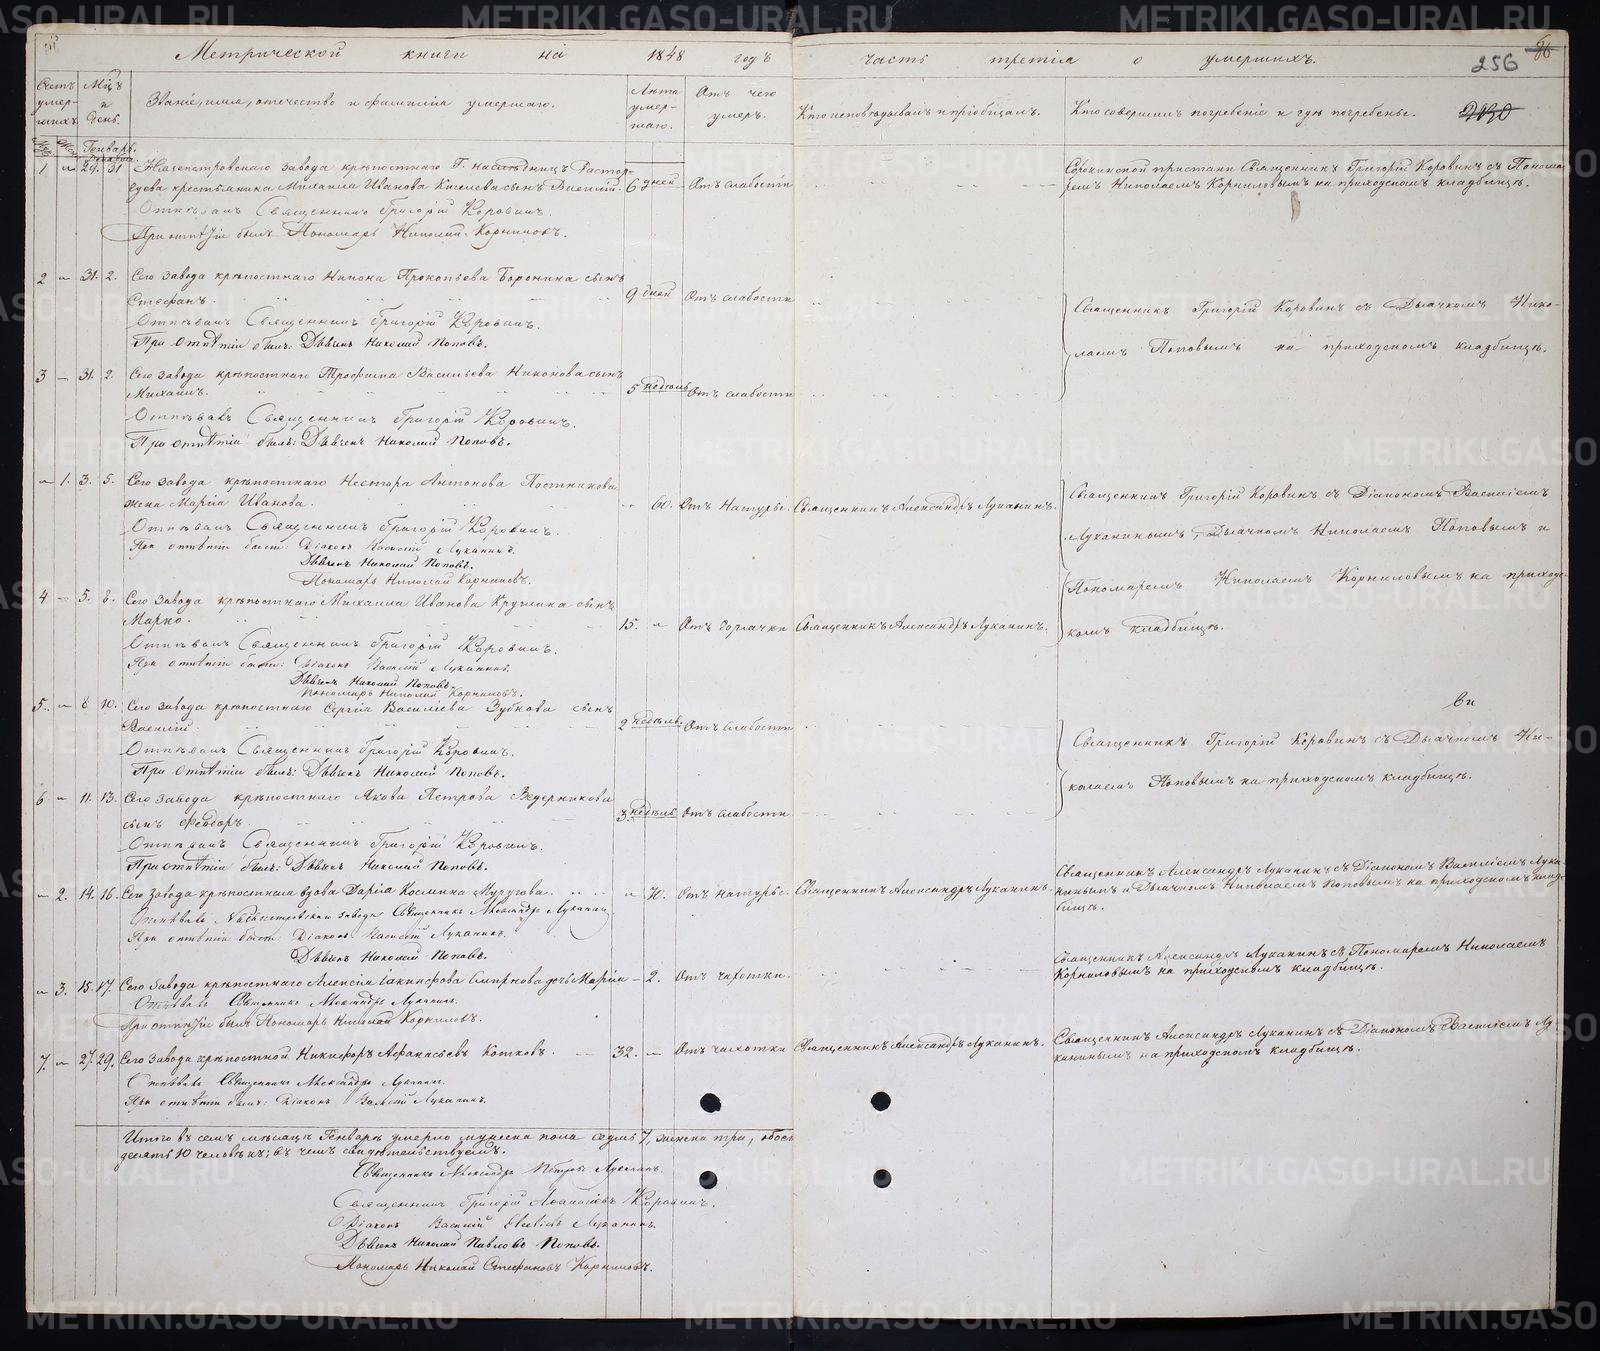 Метрической книги на 1848 годъ часть третія о умершихъ.
256
2430
Счетъ умершихъ
Мцъ и день.
Званіе, имя, отчество и фамилія умершаго.
Лѣта умершаго.
Отъ чего умеръ.
Кто исповѣдывалъ и пріобщалъ.
Кто совершилъ погребеніе и гдѣ погребены.
Генварь.
1 29. 31 завода крѣпостнаго Г. наслѣдницъ Растор-
гуева крестьянина Михаила Иванова Киселева сынъ Василій. 6 дней Отъ слабости
Сорокинской пристани Священникъ Григорій Коровинъ съ Понома-
ремъ Николаемъ Корниловымъ на приходскомъ кладбищѣ.
Отпѣвалъ Священникъ Григорій Коровинъ.
При отпѣтіи былъ Пономарь Николай Корниловъ.
2 31. 2. Сего завода крѣпостнаго Никона Прокопьева Боронина сынъ
Стефанъ. 9 дней Отъ слабости
Священникъ Григорій Коровинъ съ Дьячкомъ Нико-
лаемъ Поповымъ на приходскомъ кладбищѣ.
Отпѣвалъ Священникъ Григорій Коровинъ.
При отпѣтіи былъ: Дьячекъ Николай Поповъ.
3 31. 2. Сего завода крѣпостнаго Трофима Васильева Никонова сынъ
Михаилъ. 5 недѣль Отъ слабости
Отпѣвалъ Священникъ Григорій Коровинъ.
При отпѣтіи былъ: Дьячекъ Николай Поповъ.
1. 3. 5. Сего завода крѣпостнаго Нестора Антонова Постникова
жена Марія Иванова. 60. Отъ натуры. Священникъ Александръ Луканинъ.
Священникъ Григорій Коровинъ съ Діакономъ Василіемъ
Луканинымъ, Дьячкомъ Николаемъ Поповымъ и
Пономаремъ Николаемъ Корниловымъ на приходс-
комъ кладбищѣ.
Отпѣвалъ Священникъ Григорій Коровинъ.
При отпѣтіи были: Діаконъ Василій Луканинъ.
Дьячекъ Николай Поповъ.
Пономарь Николай Корниловъ.
4 5. 8. Сего завода крѣпостнаго Михаила Иванова Кружина сынъ
Марко. 15. Отъ горячки Священникъ Александръ Луканинъ.
Отпѣвалъ Священникъ Григорій Коровинъ.
При отпѣтіи были: Діаконъ Василій Луканинъ.
Дьячекъ Николай Поповъ.
Пономарь Николай Корниловъ.
5. 8 10. Сего завода крѣпостнаго Сергія Василіева Зубкова сынъ
Василій. 2 недѣль. Отъ слабости
Священникъ Григорій Коровинъ съ Дьячкомъ Ни-
колаемъ Поповымъ на приходскомъ кладбищѣ.
Отпѣвалъ Священникъ Григорій Коровинъ.
При отпѣтіи былъ: Дьячекъ Николай Поповъ.
6 11. 13. Сего завода крѣпостнаго Якова Петрова Ведерникова
сынъ Феодоръ. 3 недѣль Отъ слабости
Отпѣвалъ Священникъ Григорій Коровинъ.
При отпѣтіи былъ: Дьячекъ Николай Поповъ.
2. 14. 16. Сего завода крѣпостная вдова Дарія Космина Муругова. 70. Отъ натуры. Священникъ Александръ Луканинъ.
Священникъ Александръ Луканинъ съ Діакономъ Василіемъ Лука-
нинымъ и Дьячкомъ Николаемъ Поповымъ на приходскомъ клад-
бищѣ.
Отпѣвалъ завода Священникъ Александръ Луканинъ
При отпѣтіи были: Діаконъ Василій Луканинъ.
Дьячекъ Николай Поповъ.
3. 15. 17. Сего завода крѣпостнаго Алексія Іакинфова Смирнова дочь Марія 2. Отъ чахотки.
Священникъ Александръ Луканинъ съ Пономаремъ Николаемъ
Корниловымъ на приходскомъ кладбищѣ.
Отпѣвалъ Священникъ Александръ Луканинъ.
При отпѣтіи былъ Пономарь Николай Корниловъ.
7. 27. 29. Сего завода крѣпостной Никифоръ Афанасьевъ Котковъ. 32. Отъ чахотки Священникъ Александръ Луканинъ.
Священникъ Александръ Луканинъ съ Діакономъ Василіемъ Лу-
канинымъ на приходскомъ кладбищѣ.
Отпѣвалъ Священникъ Александръ Луканинъ.
При отпѣтіи былъ: Діаконъ Василій Луканинъ.
Итого въ семъ мѣсяцѣ Генварѣ умерло мужеска пола седмь 7, женска три, обоего
десять 10 человѣкъ; въ чемъ свидѣтельствуемъ.
Священникъ Александръ Петровъ Луканинъ.
Священникъ Григорій Коровинъ.
Діаконъ Василій Луканинъ.
Дьячекъ Николай Павловъ Поповъ.
Пономарь Николай Стефановъ Корниловъ.
METRIKI.GASO-URAL.RU